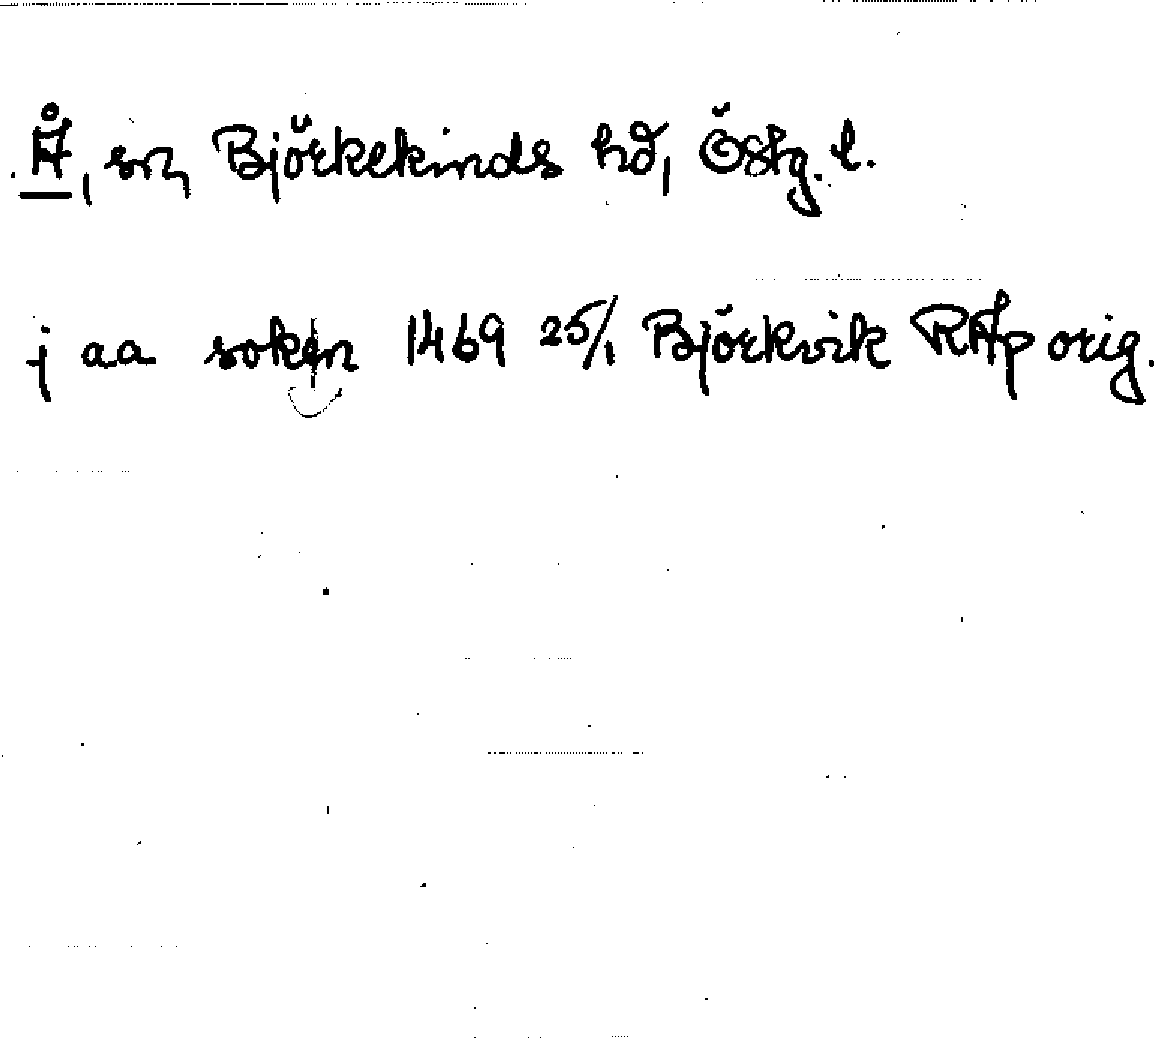 Å, sn, Björkekinds hd, Östg. l.
j aa soken 1469 25/1 Björkvik RAp orig.